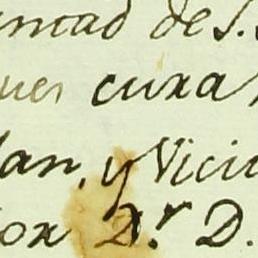 untad de S.
ues cura
lan, y Vici
or Dr. D.